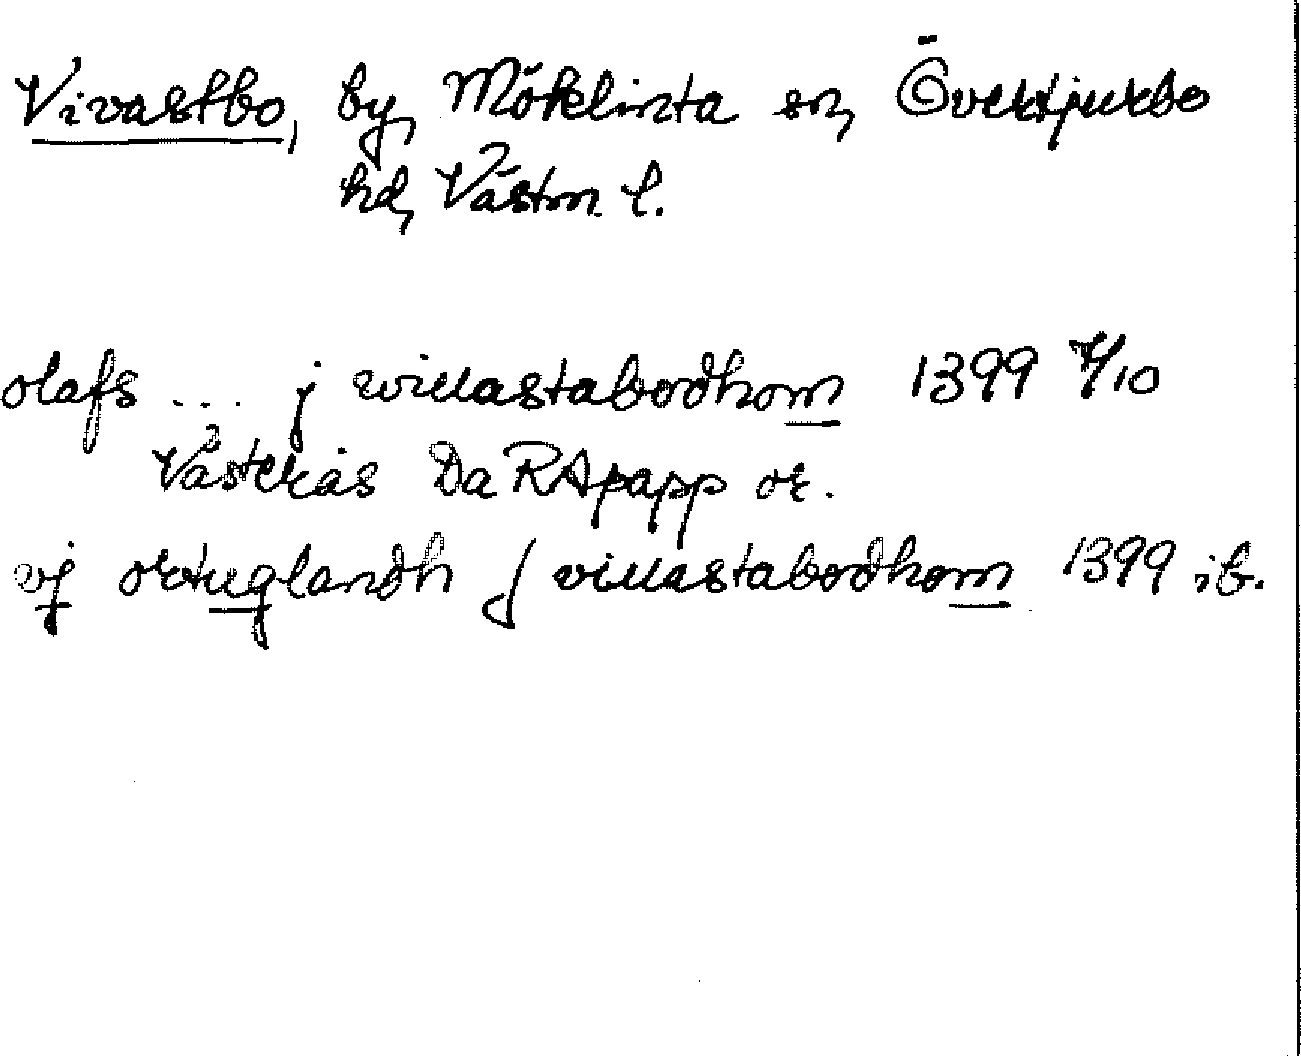 Vivastbo, by, Möklinta sn, Övertjurbo
hd, Västm l.
olafs ... j willastabodhom 1399 /10
Västerås Da RApapp or.
vj ortuglandh j villastabodhom 1399 ib.